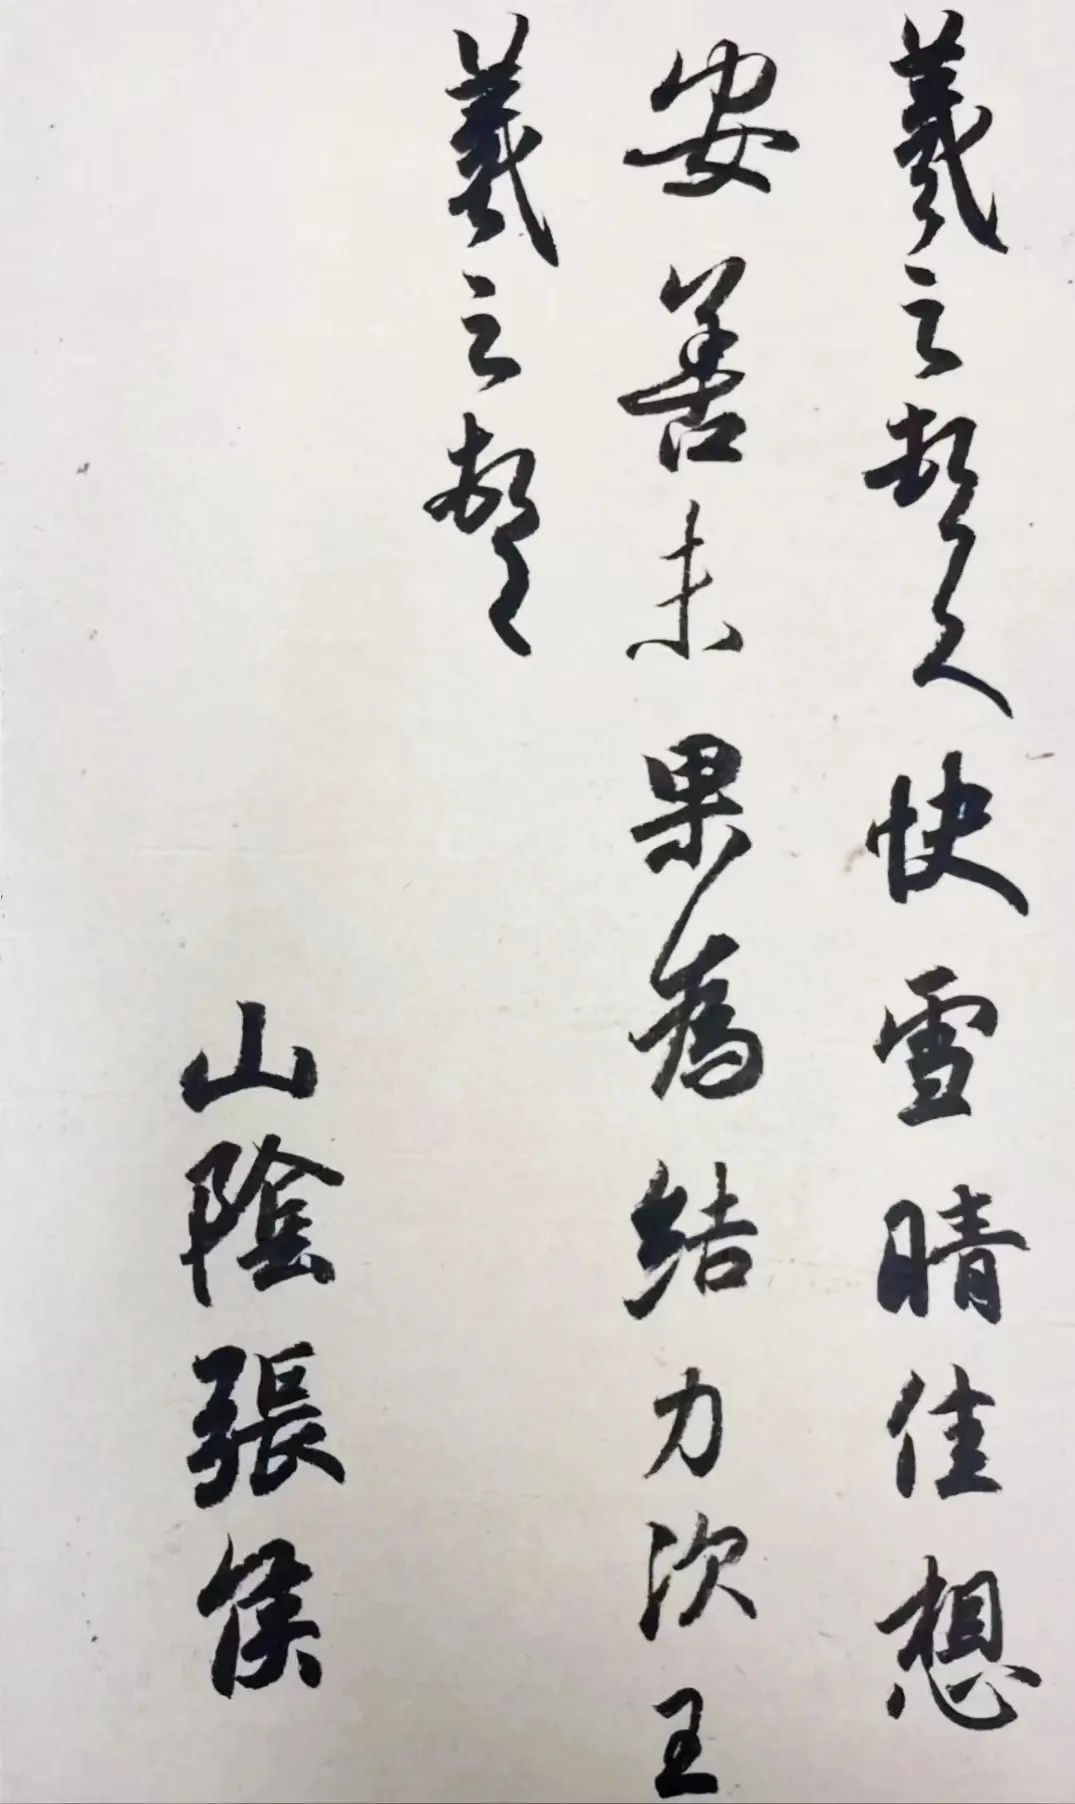 羲之頓首快雪時晴佳想
安善未果為結力次王
羲之頓首
山陰張侯